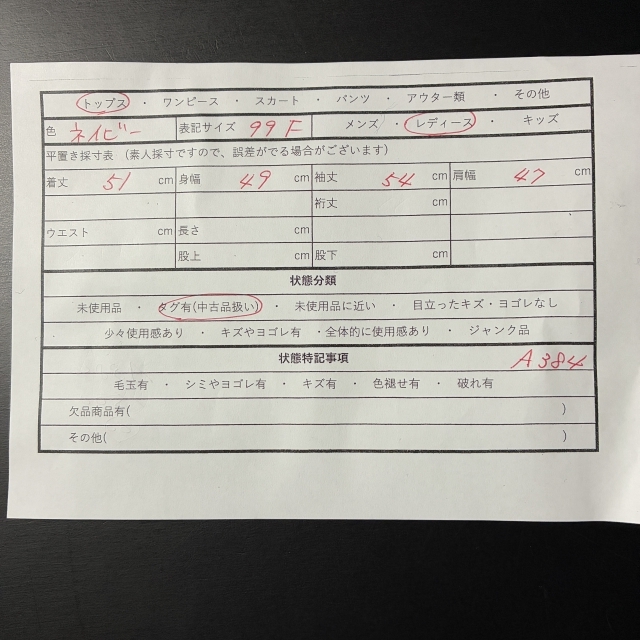 トップス ・ ワンピース ・ スカート ・ パンツ ・ アウター類 ・ その他
色 ネイビー 表記サイズ 99F メンズ ・ レディース ・ キッズ
平置き採寸表 (素人採寸ですので、誤差がでる場合がございます)
着丈 51 cm 身幅 49 cm 袖丈 54 cm 肩幅 47 cm
裄丈 cm
ウエスト cm 長さ cm
股上 cm 股下 cm
状態分類
未使用品 ・ タグ有(中古品扱い) ・ 未使用品に近い ・ 目立ったキズ・ヨゴレなし
少々使用感あり ・ キズやヨゴレ有 ・全体的に使用感あり ・ ジャンク品
状態特記事項 A384
毛玉有 ・ シミやヨゴレ有 ・ キズ有 ・ 色褪せ有 ・ 破れ有
欠品商品有( )
その他( )